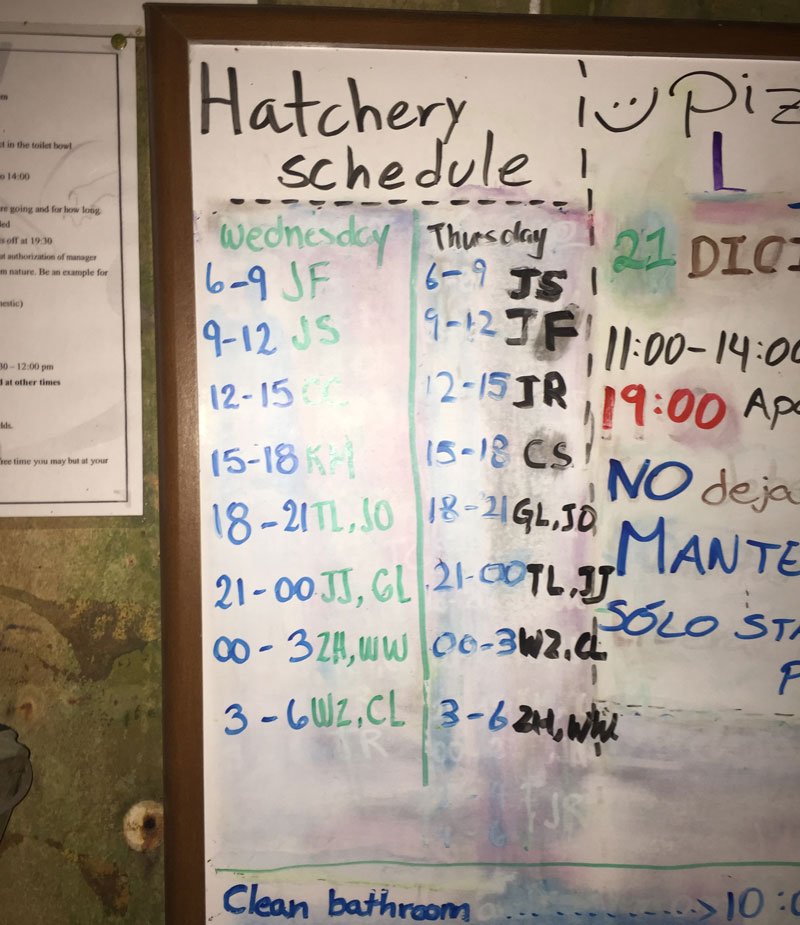 Hatchery
schedule
Wednesday
6-9 JF
9-12 JS
12-15 CC
15-18 KM
18-21 TL, JO
21-00 JJ, GL
00-3 ZH, WW
3-6 WZ, CL
Thursday
6-9 JS
9-12 JF
12-15 JR
15-18 CS
18-21 GL, JO
21-00 TL, JJ
00-3 WZ, CL
3-6 ZH, WW
JR
Clean bathroom ..........> 10:0
Piz
L
21 DICI
11:00-14:00
19:00 Apa
NO deja
MANTE
SÓLO STA
P
t in the toilet bowl
o 14:00
re going and for how long.
led
s off at 19:30
at authorization of manager
m nature. Be an example for
nestic)
30 – 12:00 pm
l at other times
lds.
free time you may but at your